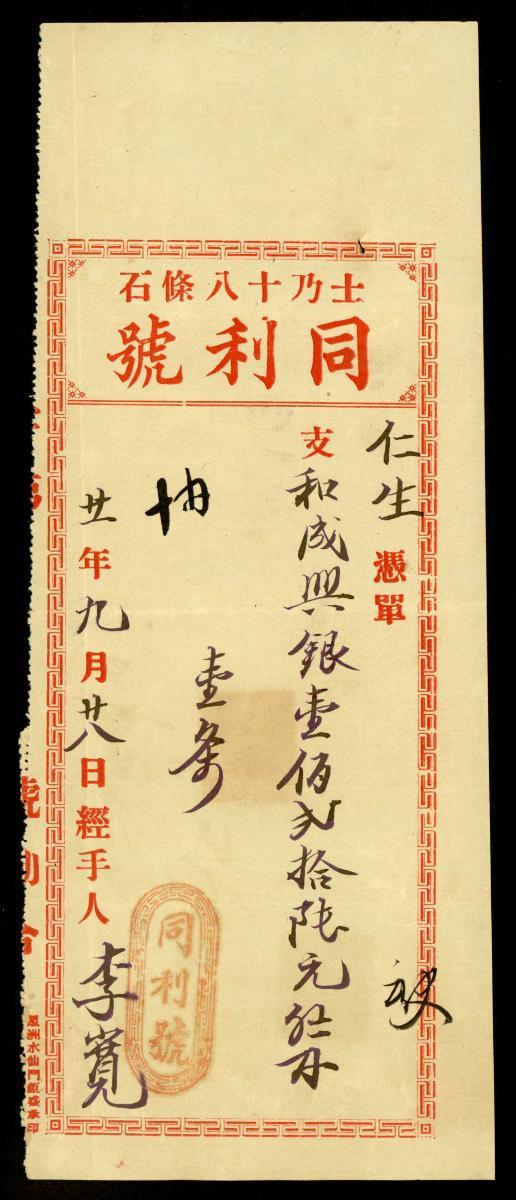 士乃十八條石
同利號
仁生憑單
支和成興銀壹佰弍拾陸元
壹條
廿一年九月廿八日經手人李寶
同利號
星洲水仙門鉅盛承印